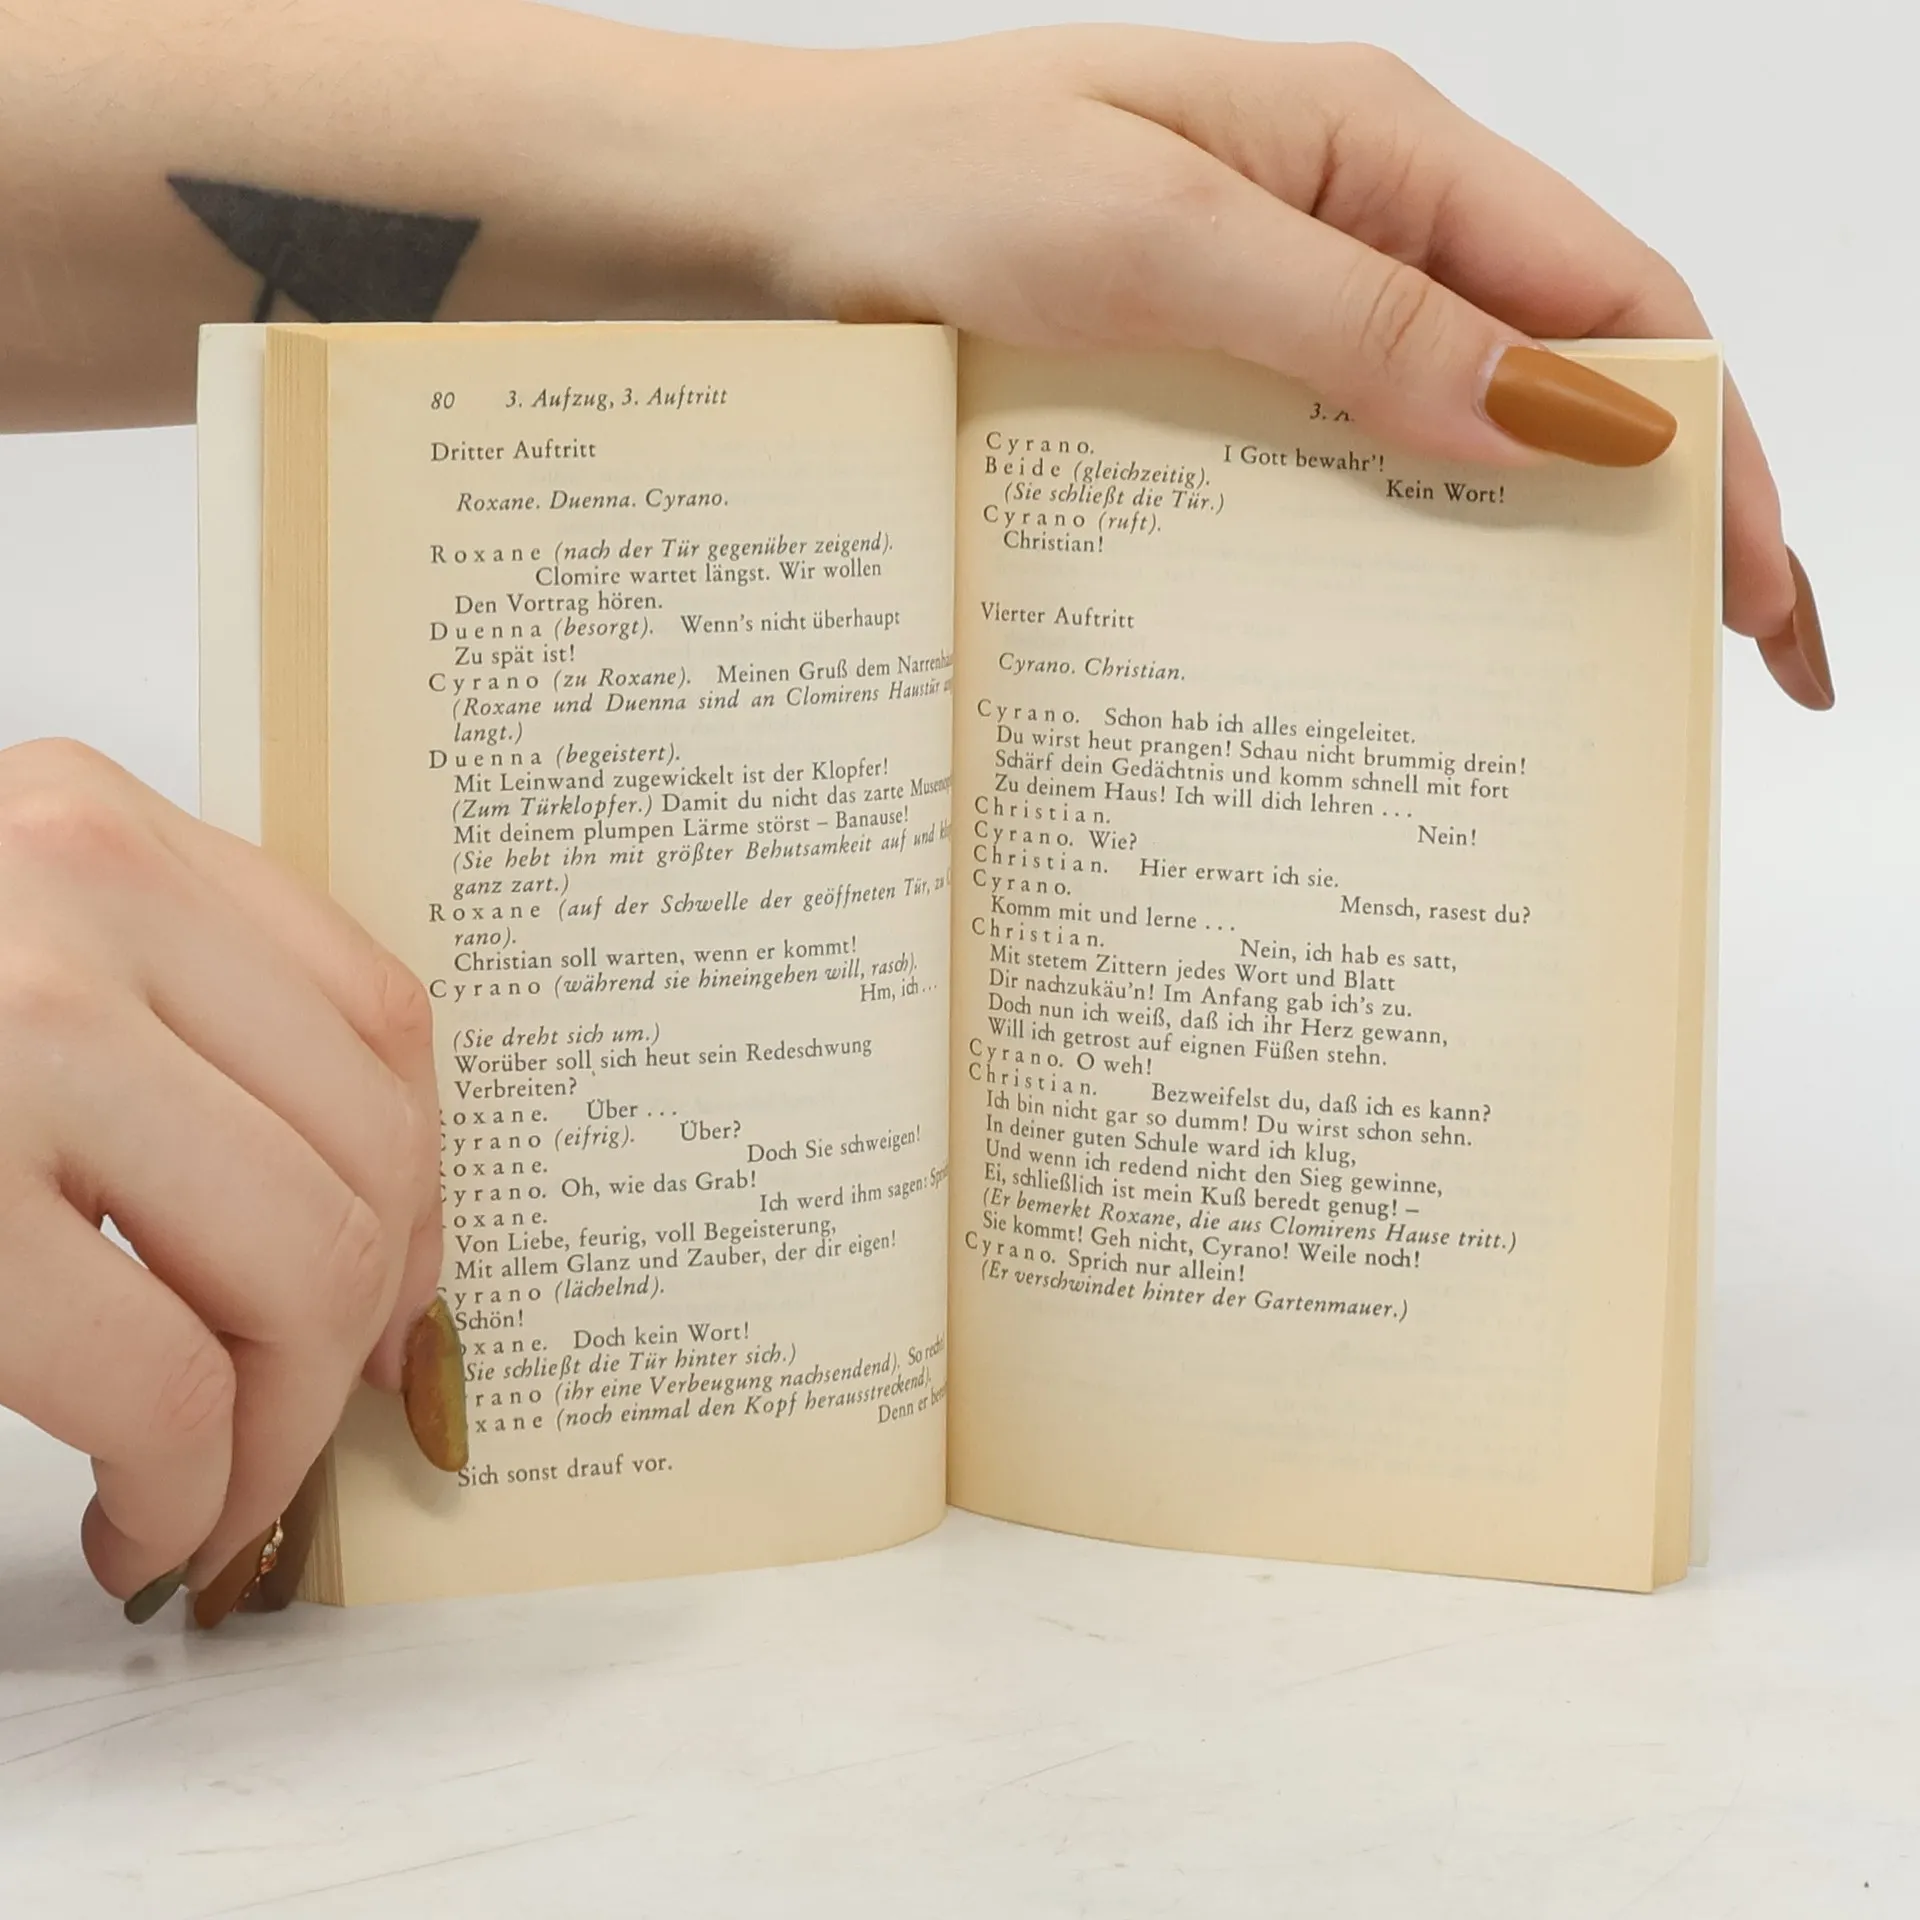 80 3. Aufzug, 3. Auftritt
Dritter Auftritt
Roxane. Duenna. Cyrano.
Roxane (nach der Tür gegenüber zeigend).
Clomire wartet längst. Wir wollen
Den Vortrag hören.
Duenna (besorgt). Wenn's nicht überhaupt
Zu spät ist!
Cyrano (zu Roxane). Meinen Gruß dem
(Roxane und Duenna sind an Clomirens Haustür
langt.)
Duenna (begeistert).
Mit Leinwand zugewickelt ist der Klopfer!
(Zum Türklopfer.) Damit du nicht das zarte
Mit deinem plumpen Lärme störst – Banause!
(Sie hebt ihn mit größter Behutsamkeit auf und
ganz zart.)
Roxane (auf der Schwelle der geöffneten Tür, zu
rano).
Christian soll warten, wenn er kommt!
Cyrano (während sie hineingehen will, rasch).
Hm, ich ...
(Sie dreht sich um.)
Worüber soll sich heut sein Redeschwung
Verbreiten?
oxane. Über ...
yrano (eifrig). Über?
oxane. Doch Sie schweigen!
yrano. Oh, wie das Grab!
oxane. Ich werd ihm sagen:
Von Liebe, feurig, voll Begeisterung,
Mit allem Glanz und Zauber, der dir eigen!
yrano (lächelnd).
Schön!
xane. Doch kein Wort!
Sie schließt die Tür hinter sich.)
rano (ihr eine Verbeugung nachsendend). So
xane (noch einmal den Kopf herausstreckend).
Denn er
Sich sonst drauf vor.
3.
Cyrano. I Gott bewahr'!
Beide (gleichzeitig). Kein Wort!
(Sie schließt die Tür.)
Cyrano (ruft).
Christian!
Vierter Auftritt
Cyrano. Christian.
Cyrano. Schon hab ich alles eingeleitet.
Du wirst heut prangen! Schau nicht brummig drein!
Schärf dein Gedächtnis und komm schnell mit fort
Zu deinem Haus! Ich will dich lehren ...
Christian. Nein!
Cyrano. Wie?
Christian. Hier erwart ich sie.
Cyrano. Mensch, rasest du?
Komm mit und lerne ...
Christian. Nein, ich hab es satt,
Mit stetem Zittern jedes Wort und Blatt
Dir nachzukäu'n! Im Anfang gab ich's zu.
Doch nun ich weiß, daß ich ihr Herz gewann,
Will ich getrost auf eignen Füßen stehn.
Cyrano. O weh!
Christian. Bezweifelst du, daß ich es kann?
Ich bin nicht gar so dumm! Du wirst schon sehn.
In deiner guten Schule ward ich klug,
Und wenn ich redend nicht den Sieg gewinne,
Ei, schließlich ist mein Kuß beredt genug! –
(Er bemerkt Roxane, die aus Clomirens Hause tritt.)
Sie kommt! Geh nicht, Cyrano! Weile noch!
Cyrano. Sprich nur allein!
(Er verschwindet hinter der Gartenmauer.)